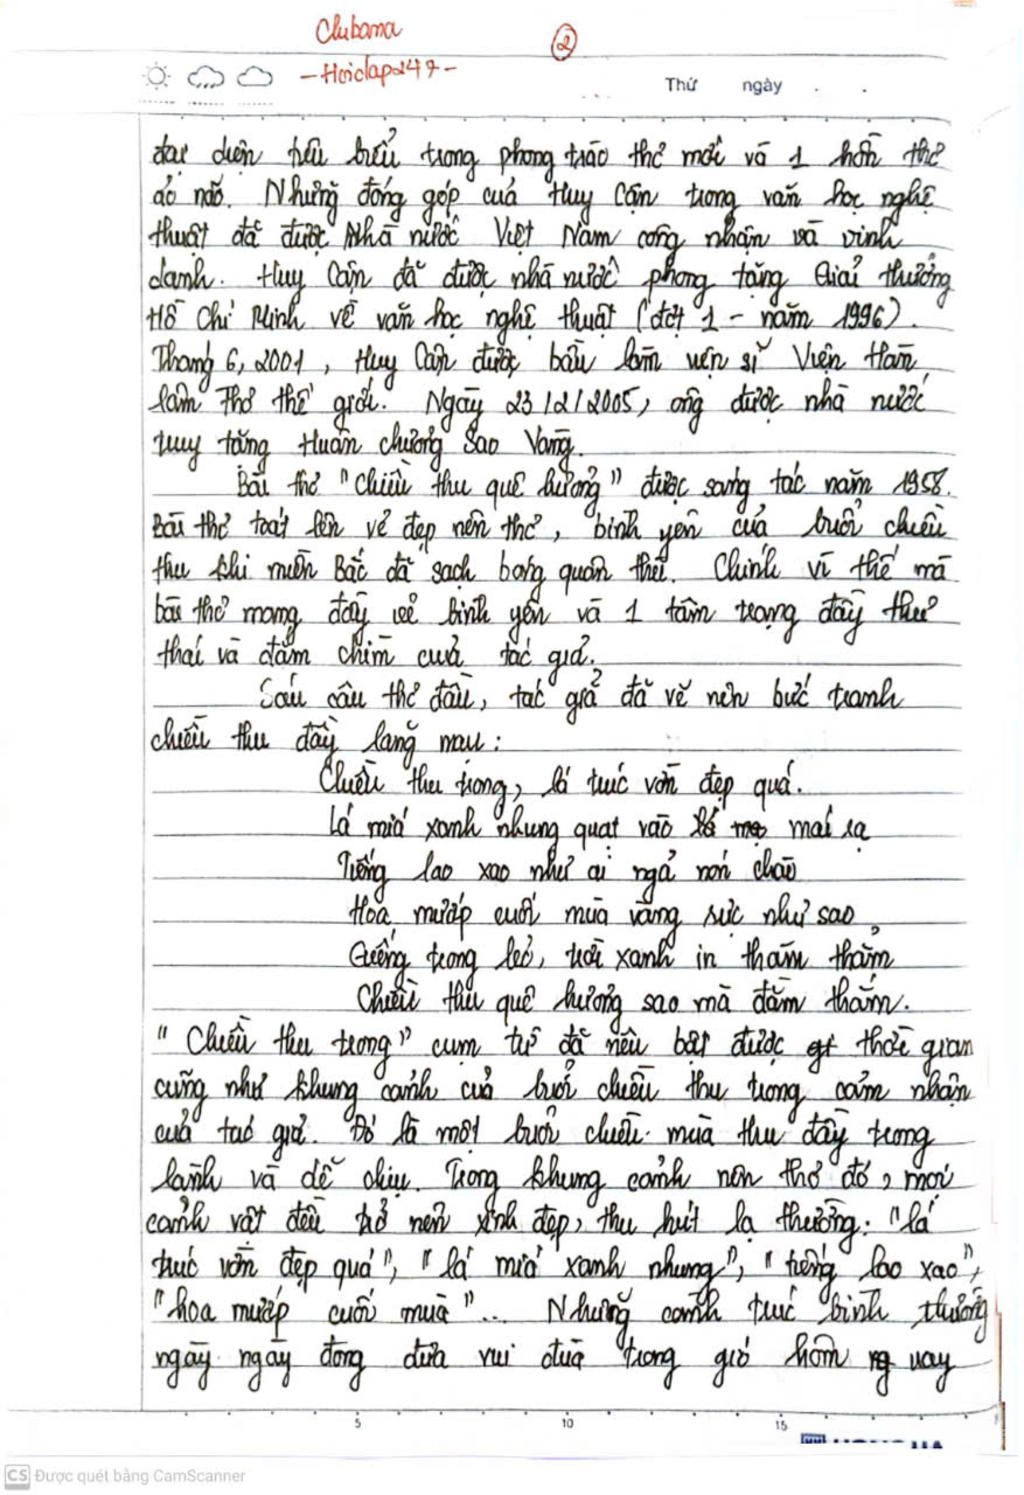 Clubama
2
-Hoidap247-
Thứ ngày
đại diện tiêu biểu trong phong trào thơ mới và 1 hồn thơ
ảo não. Những đóng góp của Huy Cận trong văn học nghệ
thuật đã được Nhà nước Việt Nam công nhận và vinh
danh. Huy Cận đã được nhà nước phong tặng Giải thưởng
Hồ Chí Minh về văn học nghệ thuật (đợt 1 - năm 1996).
Tháng 6, 2001, Huy Cận được bầu làm viện sĩ Viện Hàn
lâm Thơ thế giới. Ngày 23/2/2005, ông được nhà nước
truy tặng Huân chương Sao Vàng.
Bài thơ "Chiều thu quê hương" được sáng tác năm 1958.
Bài thơ toát lên vẻ đẹp nên thơ, bình yên của buổi chiều
thu khi miền Bắc đã sạch bóng quân thù. Chính vì thế mà
bài thơ mang đầy vẻ bình yên và 1 tâm trạng đầy thư
thái và đắm chìm của tác giả.
Sáu câu thơ đầu, tác giả đã vẽ nên bức tranh
chiều thu đầy lãng mạn:
Chiều thu trong, lá trúc vờn đẹp quá.
Lá mía xanh nhung quạt vào mái rạ
Tiếng lao xao như ai ngả nón chào
Hoa mướp cuối mùa vàng rực như sao
Giếng trong leo, trời xanh in thăm thẳm
Chiều thu quê hương sao mà đằm thắm.
"Chiều thu trong" cụm từ đã nêu bật được thời gian
cũng như khung cảnh của buổi chiều thu trong cảm nhận
của tác giả. Đó là một buổi chiều mùa thu đầy trong
lành và dễ chịu. Trong khung cảnh nên thơ đó, mọi
cảnh vật đều trở nên xinh đẹp, thu hút lạ thường: "lá
trúc vờn đẹp quá", "lá mía xanh nhung", "tiếng lao xao",
"hoa mướp cuối mùa"... Những cành trúc bình thường
ngày ngày đong đưa vui đùa trong gió hôm nay
5 10 15
CS Được quét bằng CamScanner